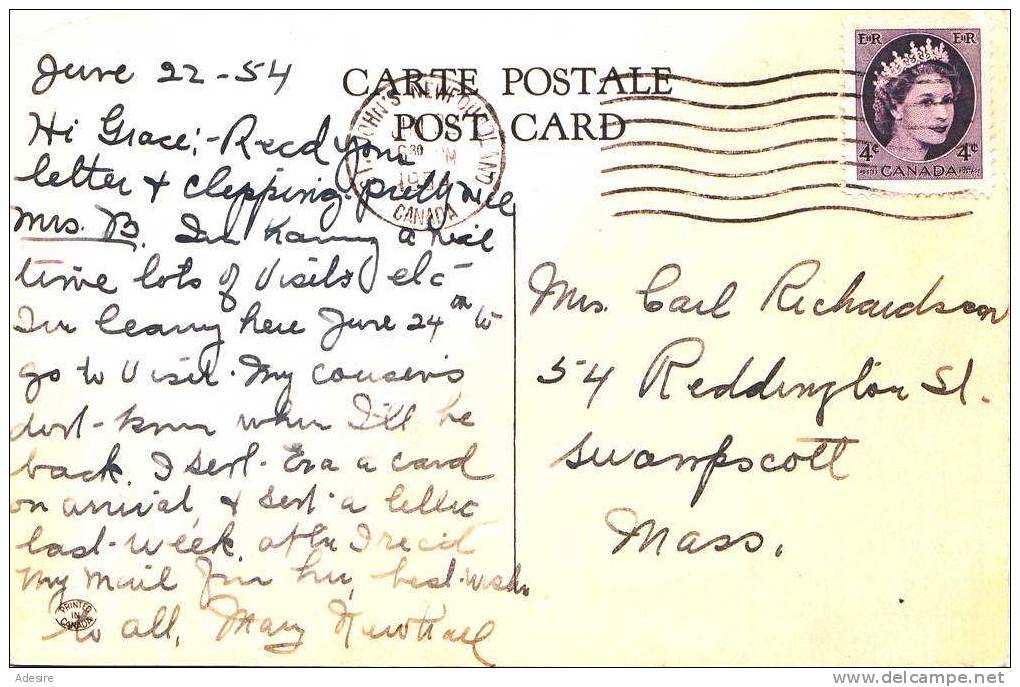 June 22 - 54
Hi Grace:- Recd your
letter & clipping. pretty nice
Mrs. B. Im having a nice
time lots of visits etc
Im leaving here June 24th to
go to visit. My cousins
dont know when I'll be
back. I sent Era a card
on arrival, & sent a letter
last week. after I rec'd
My mail from her, best wishes
to all, Mary Newhall
PRINTED
IN
CANADA
CARTE POSTALE
POST CARD
ST. JOHN'S NEWFOUNDLAND
CANADA
EIIR EIIR
4¢ 4¢
POSTES CANADA POSTAGE
Mrs. Carl Richardson
54 Reddington St.
Swampscott
Mass.
Adesire
delcampe.net